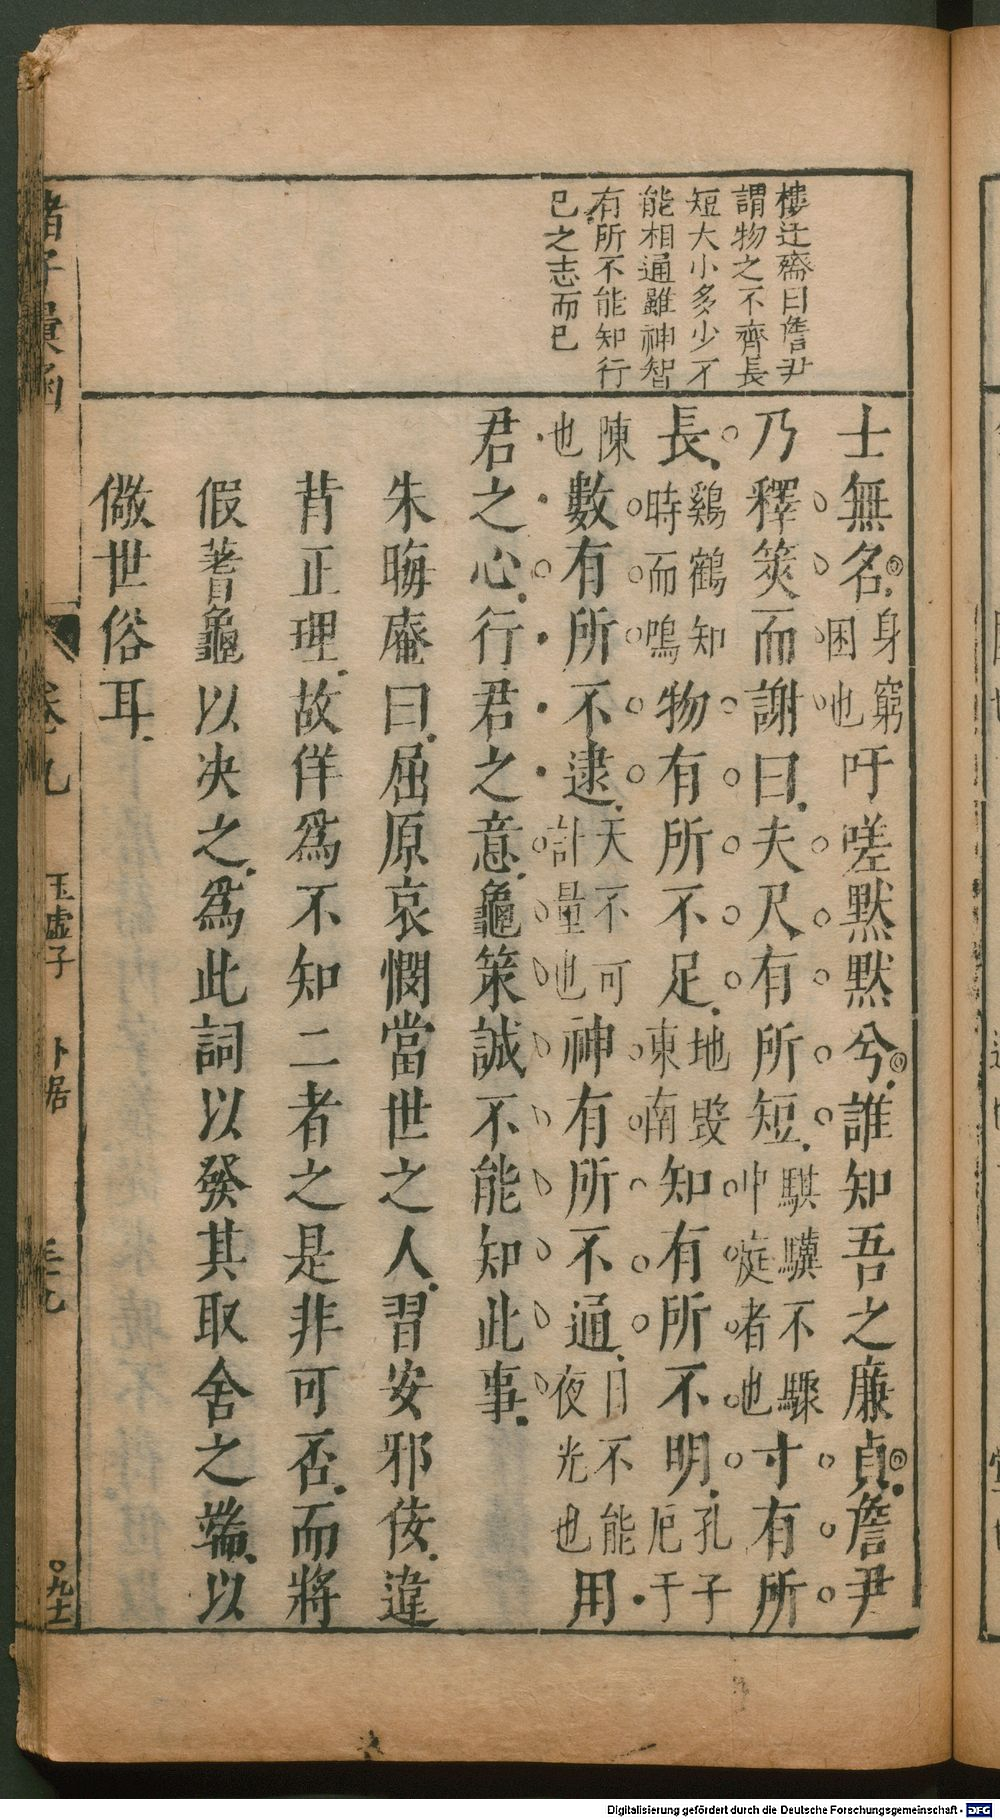 樓迂齋曰詹尹
謂物之不齊長
短大小多少不
能相通雖神智
有所不能知行
已之志而已
士無名身窮困也吁嗟默默兮誰知吾之廉貞詹尹
乃釋筴而謝曰夫尺有所短騏驥不驟中庭者也寸有所
長鷄鶴知時而鳴物有所不足地毀東南知有所不明孔子厄于
陳也數有所不逮天不可計量也神有所不通日不能夜光也用
君之心行君之意龜策誠不能知此事
朱晦庵曰屈原哀憫當世之人習安邪佞違
背正理故佯爲不知二者之是非可否而將
假蓍龜以决之爲此詞以發其取舍之端以
儆世俗耳
諸子彙函
卷九
玉虛子
卜居
Digitalisierung gefördert durch die Deutsche Forschungsgemeinschaft - DFG